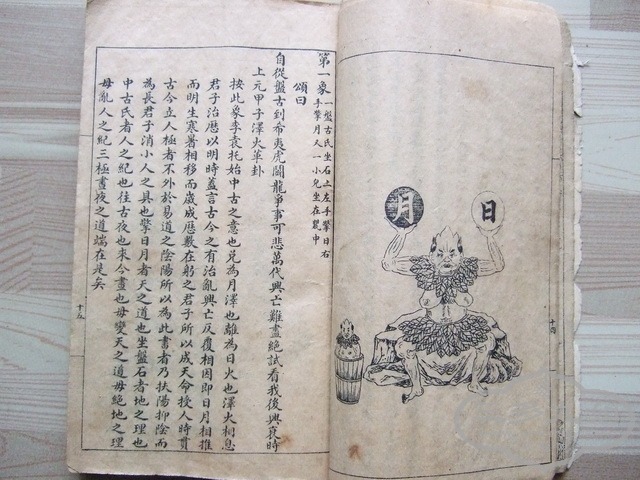 日
月
十四
第一象
一盤古氏坐石上左手擎日右
手擎月又一小兒坐在甕中
頌曰
自從盤古到希夷虎鬭龍爭事可悲萬代興亡難盡絕試看我後興衰時
上元甲子澤火革卦
按此象李袁托始中古之意也兌為月澤也離為日火也澤火相息
君子治歷以明時蓋言古今之有治亂興亡反覆相因即日月相推
而明生寒暑相移而歲成歷數在躬之君子所以成天命授人時貫
古今立人極者不外於易道之陰陽所以為此書者乃扶陽抑陰而
為長君子消小人之具也擎日月者天之道也坐盤石者地之理也
中古氏者人之紀也往古夜也來今晝也毋變天之道毋絕地之理
毋亂人之紀三極晝夜之道端在是矣
十五